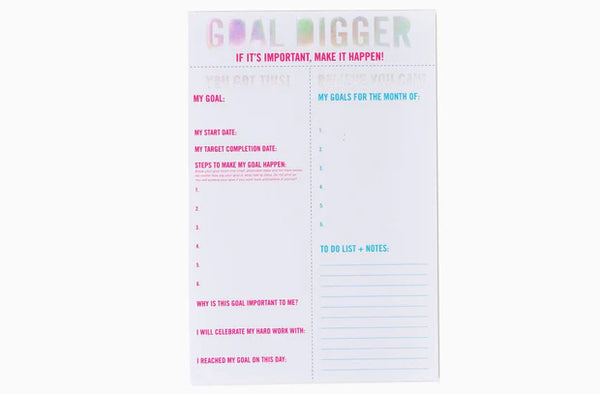 GOAL DIGGER
IF IT'S IMPORTANT, MAKE IT HAPPEN!
YOU GOT THIS!
BELIEVE YOU CAN!
MY GOAL:
MY START DATE:
MY TARGET COMPLETION DATE:
STEPS TO MAKE MY GOAL HAPPEN:
1.
2.
3.
4.
5.
6.
WHY IS THIS GOAL IMPORTANT TO ME?
I WILL CELEBRATE MY HARD WORK WITH:
I REACHED MY GOAL ON THIS DAY:
MY GOALS FOR THE MONTH OF:
1.
2.
3.
4.
5.
6.
TO DO LIST + NOTES: